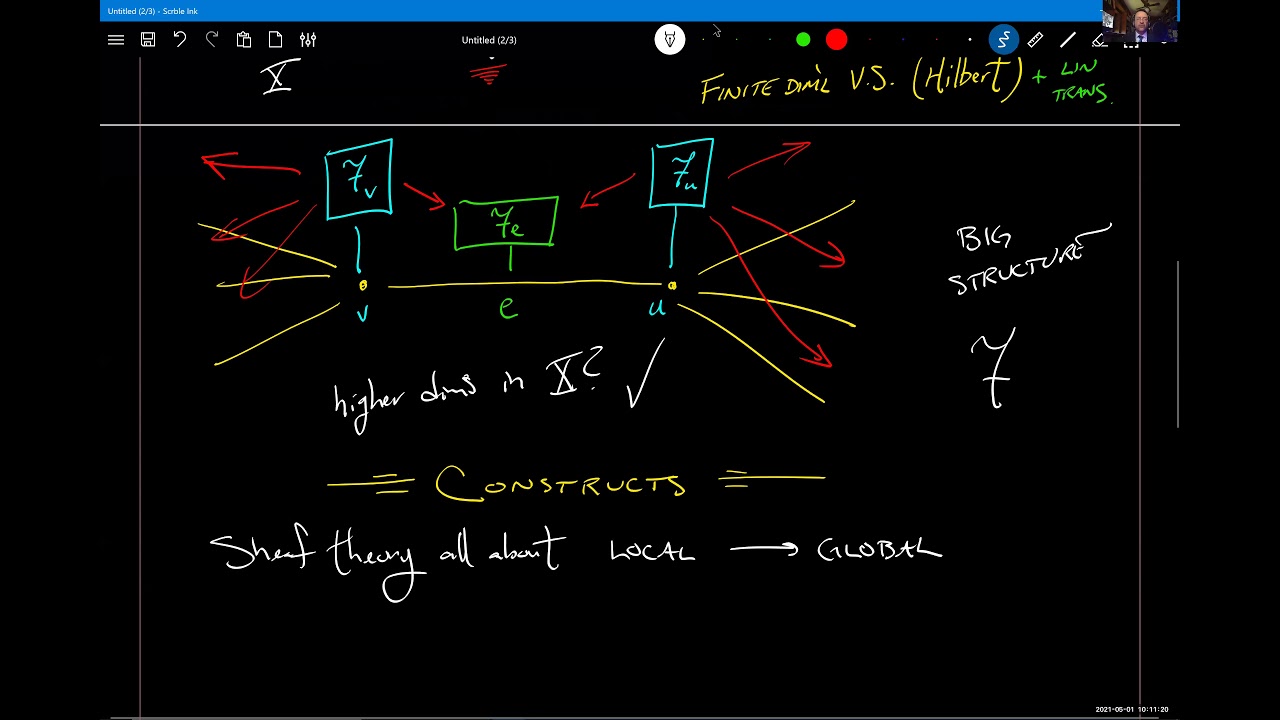 Untitled (2/3) - Scrble Ink
Untitled (2/3)
X
FINITE DIM'L V.S. (Hilbert) + LIN TRANS.
F_v
F_u
F_e
v
e
u
BIG
STRUCTURE
F
higher dims in X? ✓
CONSTRUCTS
Sheaf theory all about LOCAL → GLOBAL
2021-05-01 10:11:20